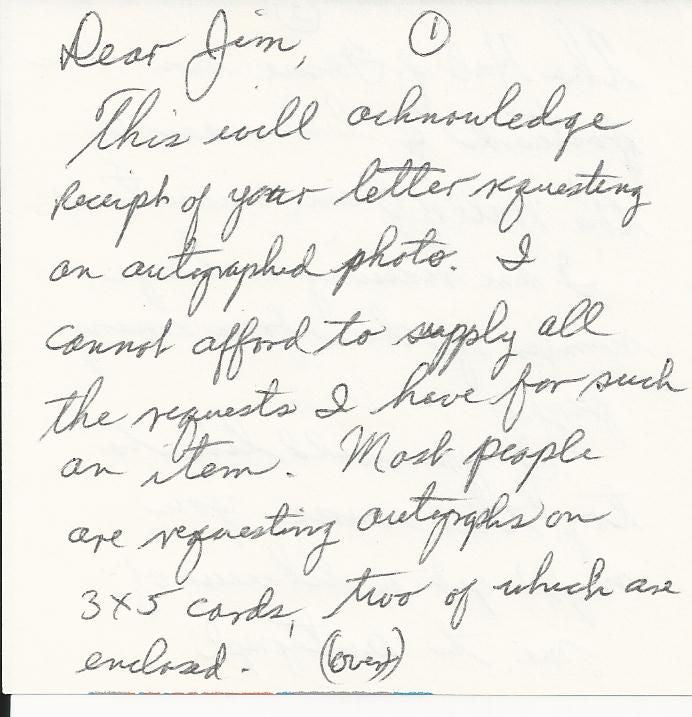 Dear Jim, ①
This will acknowledge
receipt of your letter requesting
an autographed photo. I
cannot afford to supply all
the requests I have for such
an item. Most people
are requesting autographs on
3x5 cards, two of which are
enclosed. (over)